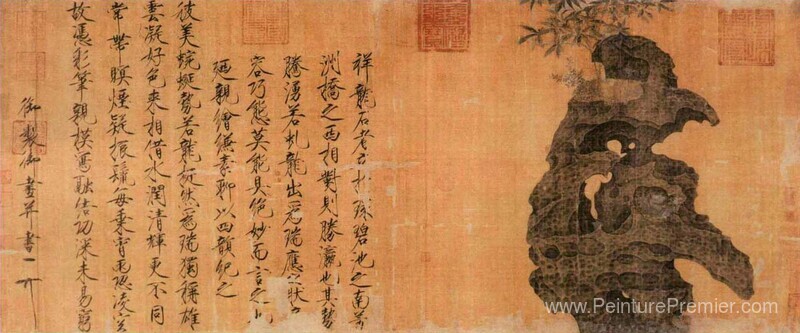 祥龍石者立於環碧池之南芳
洲橋之西相對則勝瀛也其勢
騰湧若虬龍出為瑞應之狀奇
容巧態莫能具絕妙而言之也
廼親繪縑素聊以四韻紀之
彼美蜿蜒勢若龍挺然為瑞獨稱雄
雲凝好色來相借水潤清輝更不同
常帶暝煙疑振鬣每乘宵雨恐凌空
故憑彩筆親模寫融結功深未易窮
御製御畫并書
www.PeinturePremier.com